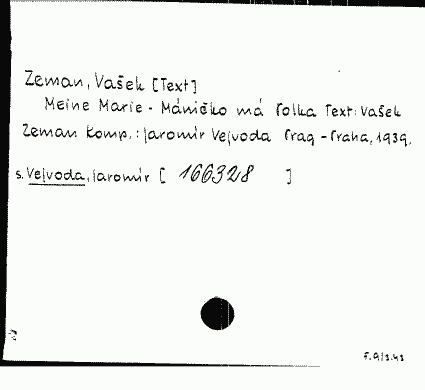 Zeman, Vašek [Text]
Meine Marie - Máničko má Polka Text: Vašek
Zeman Komp.: Jaromír Vejvoda Prag - Praha, 1939.
s. Vejvoda, Jaromír [ 166328 ]